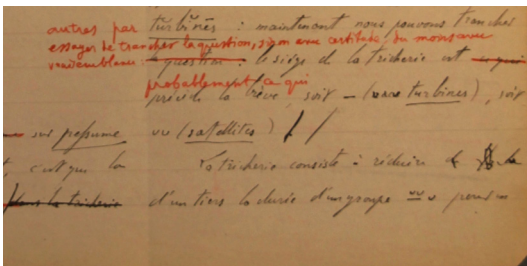 autres par turbinēs : maintenant nous pouvons trancher
essayer de trancher la question, sinon avec certitude du moins avec
vraisemblance : la question : le siège de la tricherie est ce qui
probablement ce qui
précède la brève, soit – (turbines), soit
present ∪∪ (satellites)
c'est que la La tricherie consiste : réduire
dans la tricherie d'un tiers la durée d'un groupe ∪∪